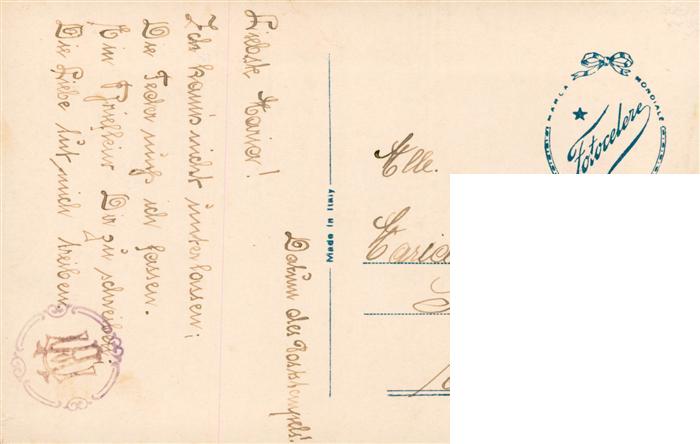 Liebste Maria!
Ich kann's nicht unterlassen;
Die Feder muß ich fassen.
Ein Brieflein Dir zu schreiben.
Die Liebe tut mich treiben.
Datum des Poststempels!
Made in Italy
MARCA MONDIALE
Fotocelere
Mlle.
Maria